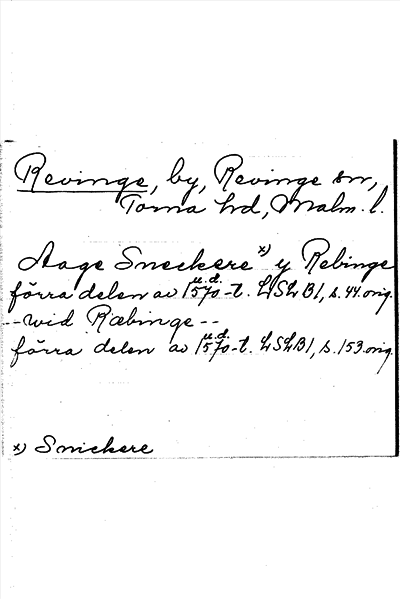 Revinge, by, Revinge sn,
Torna hd, Malm. l.
Aage Sneckere x) y Rebinge
u.d.
förra delen av 1570-t. LSLB1, s. 44. orig.
-- wid Ræbinge --
u.d.
förra delen av 1570-t. LSLB1, s. 153. orig.
x) Snickere